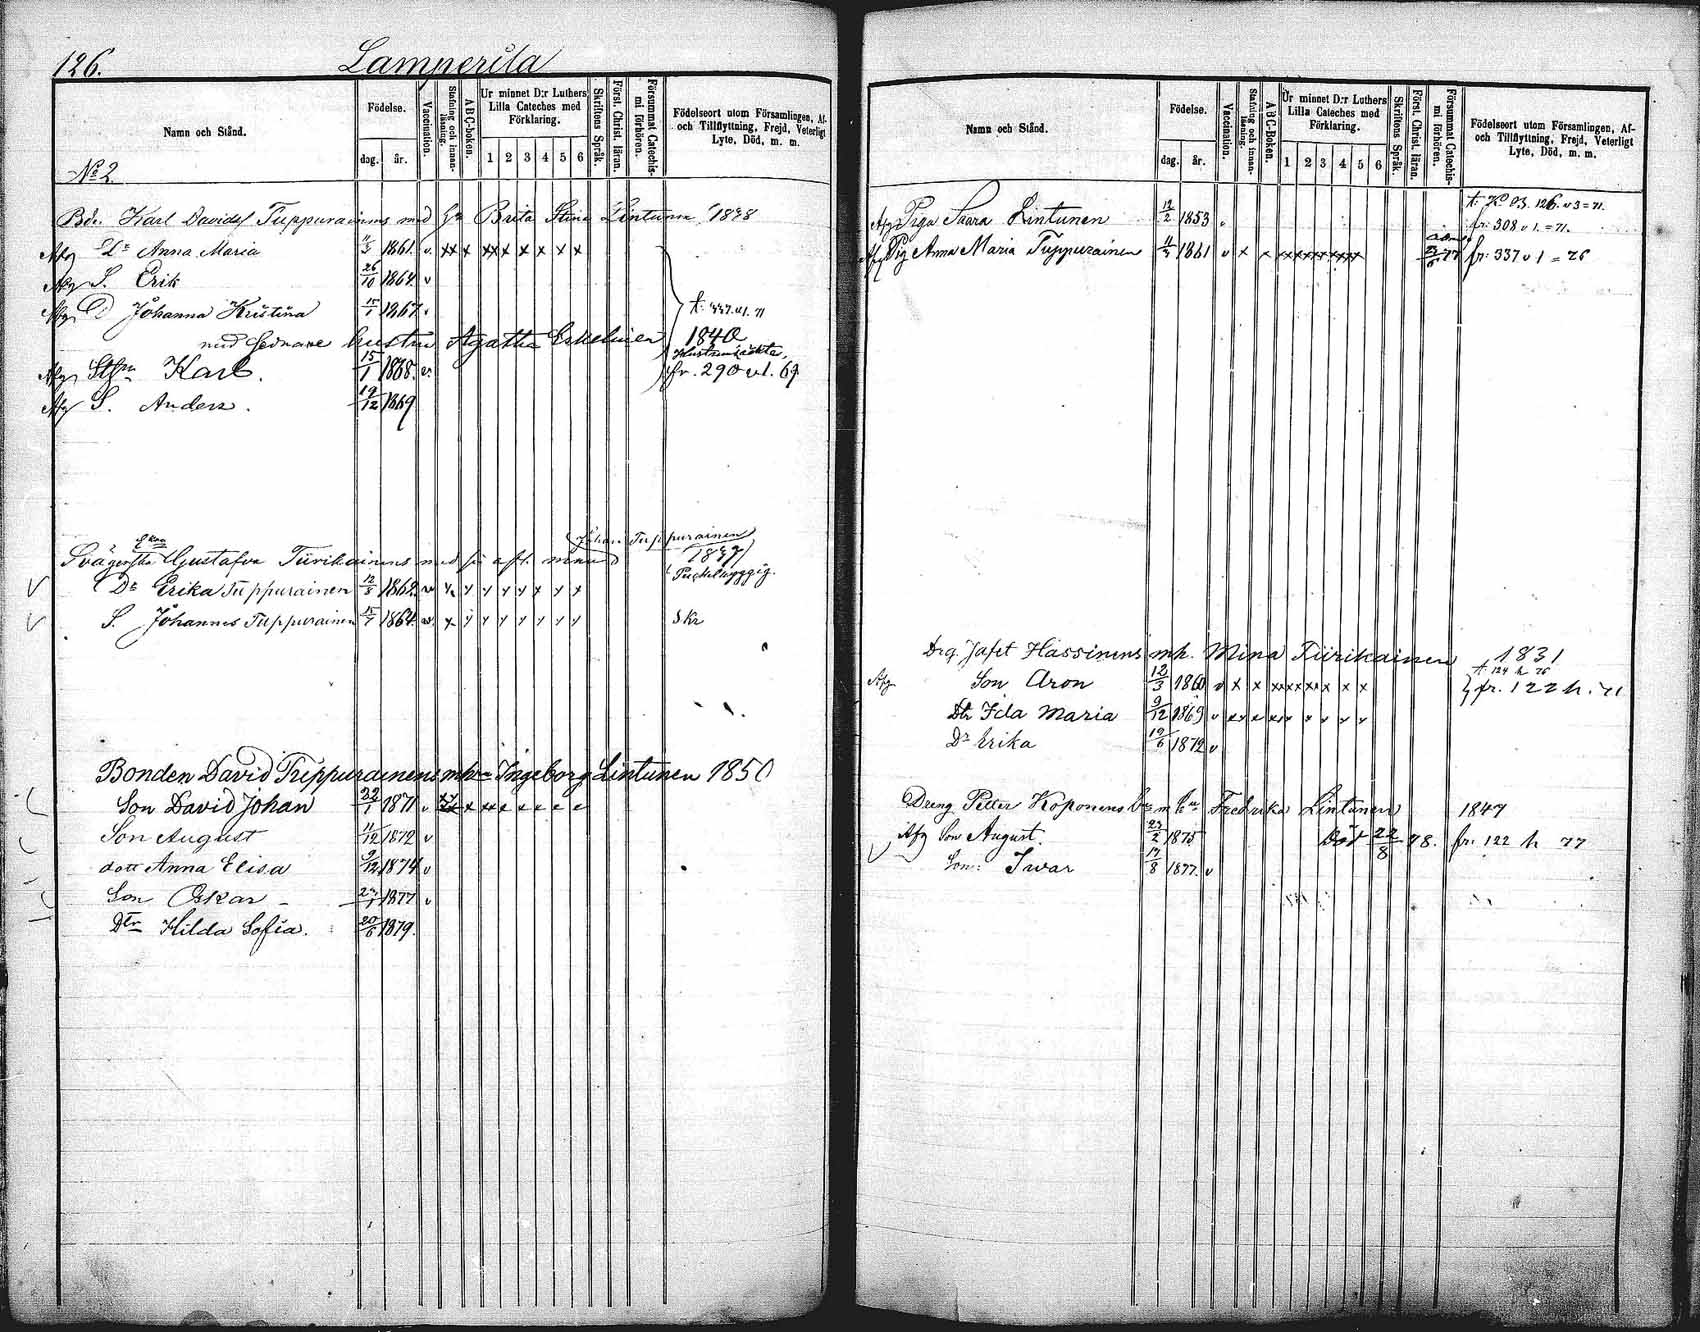 126. Lamperila
Namn och Stånd. Födelse. dag. år. Vaccination. Stafning och innanläsning. ABC-boken. Ur minnet D:r Luthers Lilla Cateches med Förklaring. 1 2 3 4 5 6 Skriftens Språk. Först. Christ. läran. Försummat Catechismi förhören. Födelseort utom Församlingen, Af- och Tillflyttning, Frejd, Veterligt Lyte, Död, m. m.
No 2.
Bde. Karl Davids Tuppurainens med Brita Stina Lintunen 1838
Afg Dr Anna Maria 11/3 1861. v. xx x xx x x x x x
Afg S. Erik 26/10 1864. v
Afg D Johanna Kristina 15/1 1867. v t: 447. v1. 71
med sednare hustru Agatha Eskelinen 1840
Afg Karl. 15/1 1868. v. fr. 290 v 1. 69
Afg S. Anders. 19/12 1869
Johan Tuppurainen
Svägerska Gustafva Tiirikainens med 1837
Puckelryggig.
Dr Erika Tuppurainen 12/8 1862 v x y y y y x y y
S. Johannes Tuppurainen 15/7 1864. v x y y y y y y y skr
Bonden David Tuppurainens mhu Ingeborg Lintunen 1850
Son David Johan 22/1 1871 v x xx x x x x x
Son August 11/12 1872 v
dott Anna Elisa 9/12 1874 v
Son Oskar – 1877 v
Dtr Hilda Sofia. 20/6 1879.
Namn och Stånd. Födelse. dag. år. Vaccination. Stafning och innanläsning. ABC-Boken. Ur minnet D:r Luthers Lilla Cateches med Förklaring. 1 2 3 4 5 6 Skriftens Språk. Först. Christ. läran. Försummat Catechismi förhören. Födelseort utom Församlingen, Af- och Tillflyttning, Frejd, Veterligt Lyte, Död, m. m.
t: K 126. v 3 = 71.
Afg Piga Saara Lintunen 12/2 1853 v fr: 308 v 1. = 71.
Afg Pig Anna Maria Tuppurainen 11/3 1861 v x x xxxxxxxxx 77 fr: 337 v 1 = 76
Drg. Jafet Hassinens mh. Mina Tiirikainen 1831
t 124 h 76
Afg Son Aron 12/3 1860 v x x xxxxxx x x x fr. 122 h. 71
Dtr Ida Maria 9/12 1865 v xx x xxx x x x x x
Dr Erika 19/6 1872 v
Dreng Petter Koponens m hu Fredrika Lintunen 1847
Afg Son August. 25/2 1875 Död 22/8 78. fr: 122 h 77
Son: Ivar 17/8 1877. v